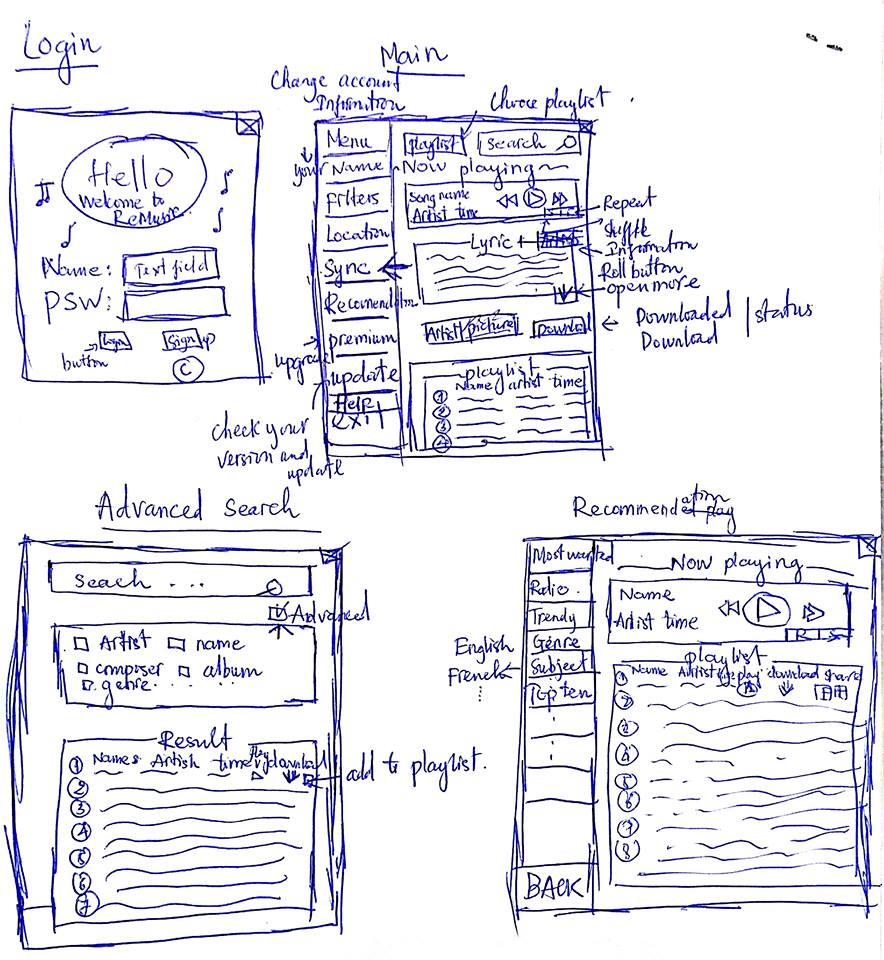 Login
Hello
Welcome to
ReMusic
Name: Text field
PSW:
Login
Sign up
button
C
Main
Change account
Information
Choose playlist
Menu
your Name
Filters
Location
Sync
premium
upgrade
update
Help
Exit
check your
version and
update
playlist
search
Now playing
Song name
Artist time
Repeat
Information
Lyric
Roll button
open more
Artist picture
Download
Downloaded | status
Download
playlist
Name artist time
1
2
3
4
Advanced search
Seach ...
Advanced
Artist name
composer album
genre.....
Result
1 Names Artish time play download
add to playlist.
2
3
4
5
6
7
Recommendation
play
Most wanted
Radio
Trendy
Genre
Subject
English
French
Top ten
BACK
Now playing
Name
Artist time
R I S
playlist
1 Name Artist play download share
2
2
4
5
6
7
8